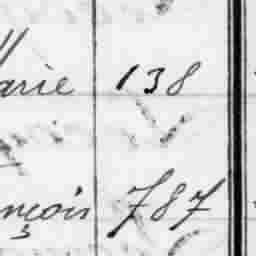 arie 138
nçois 787